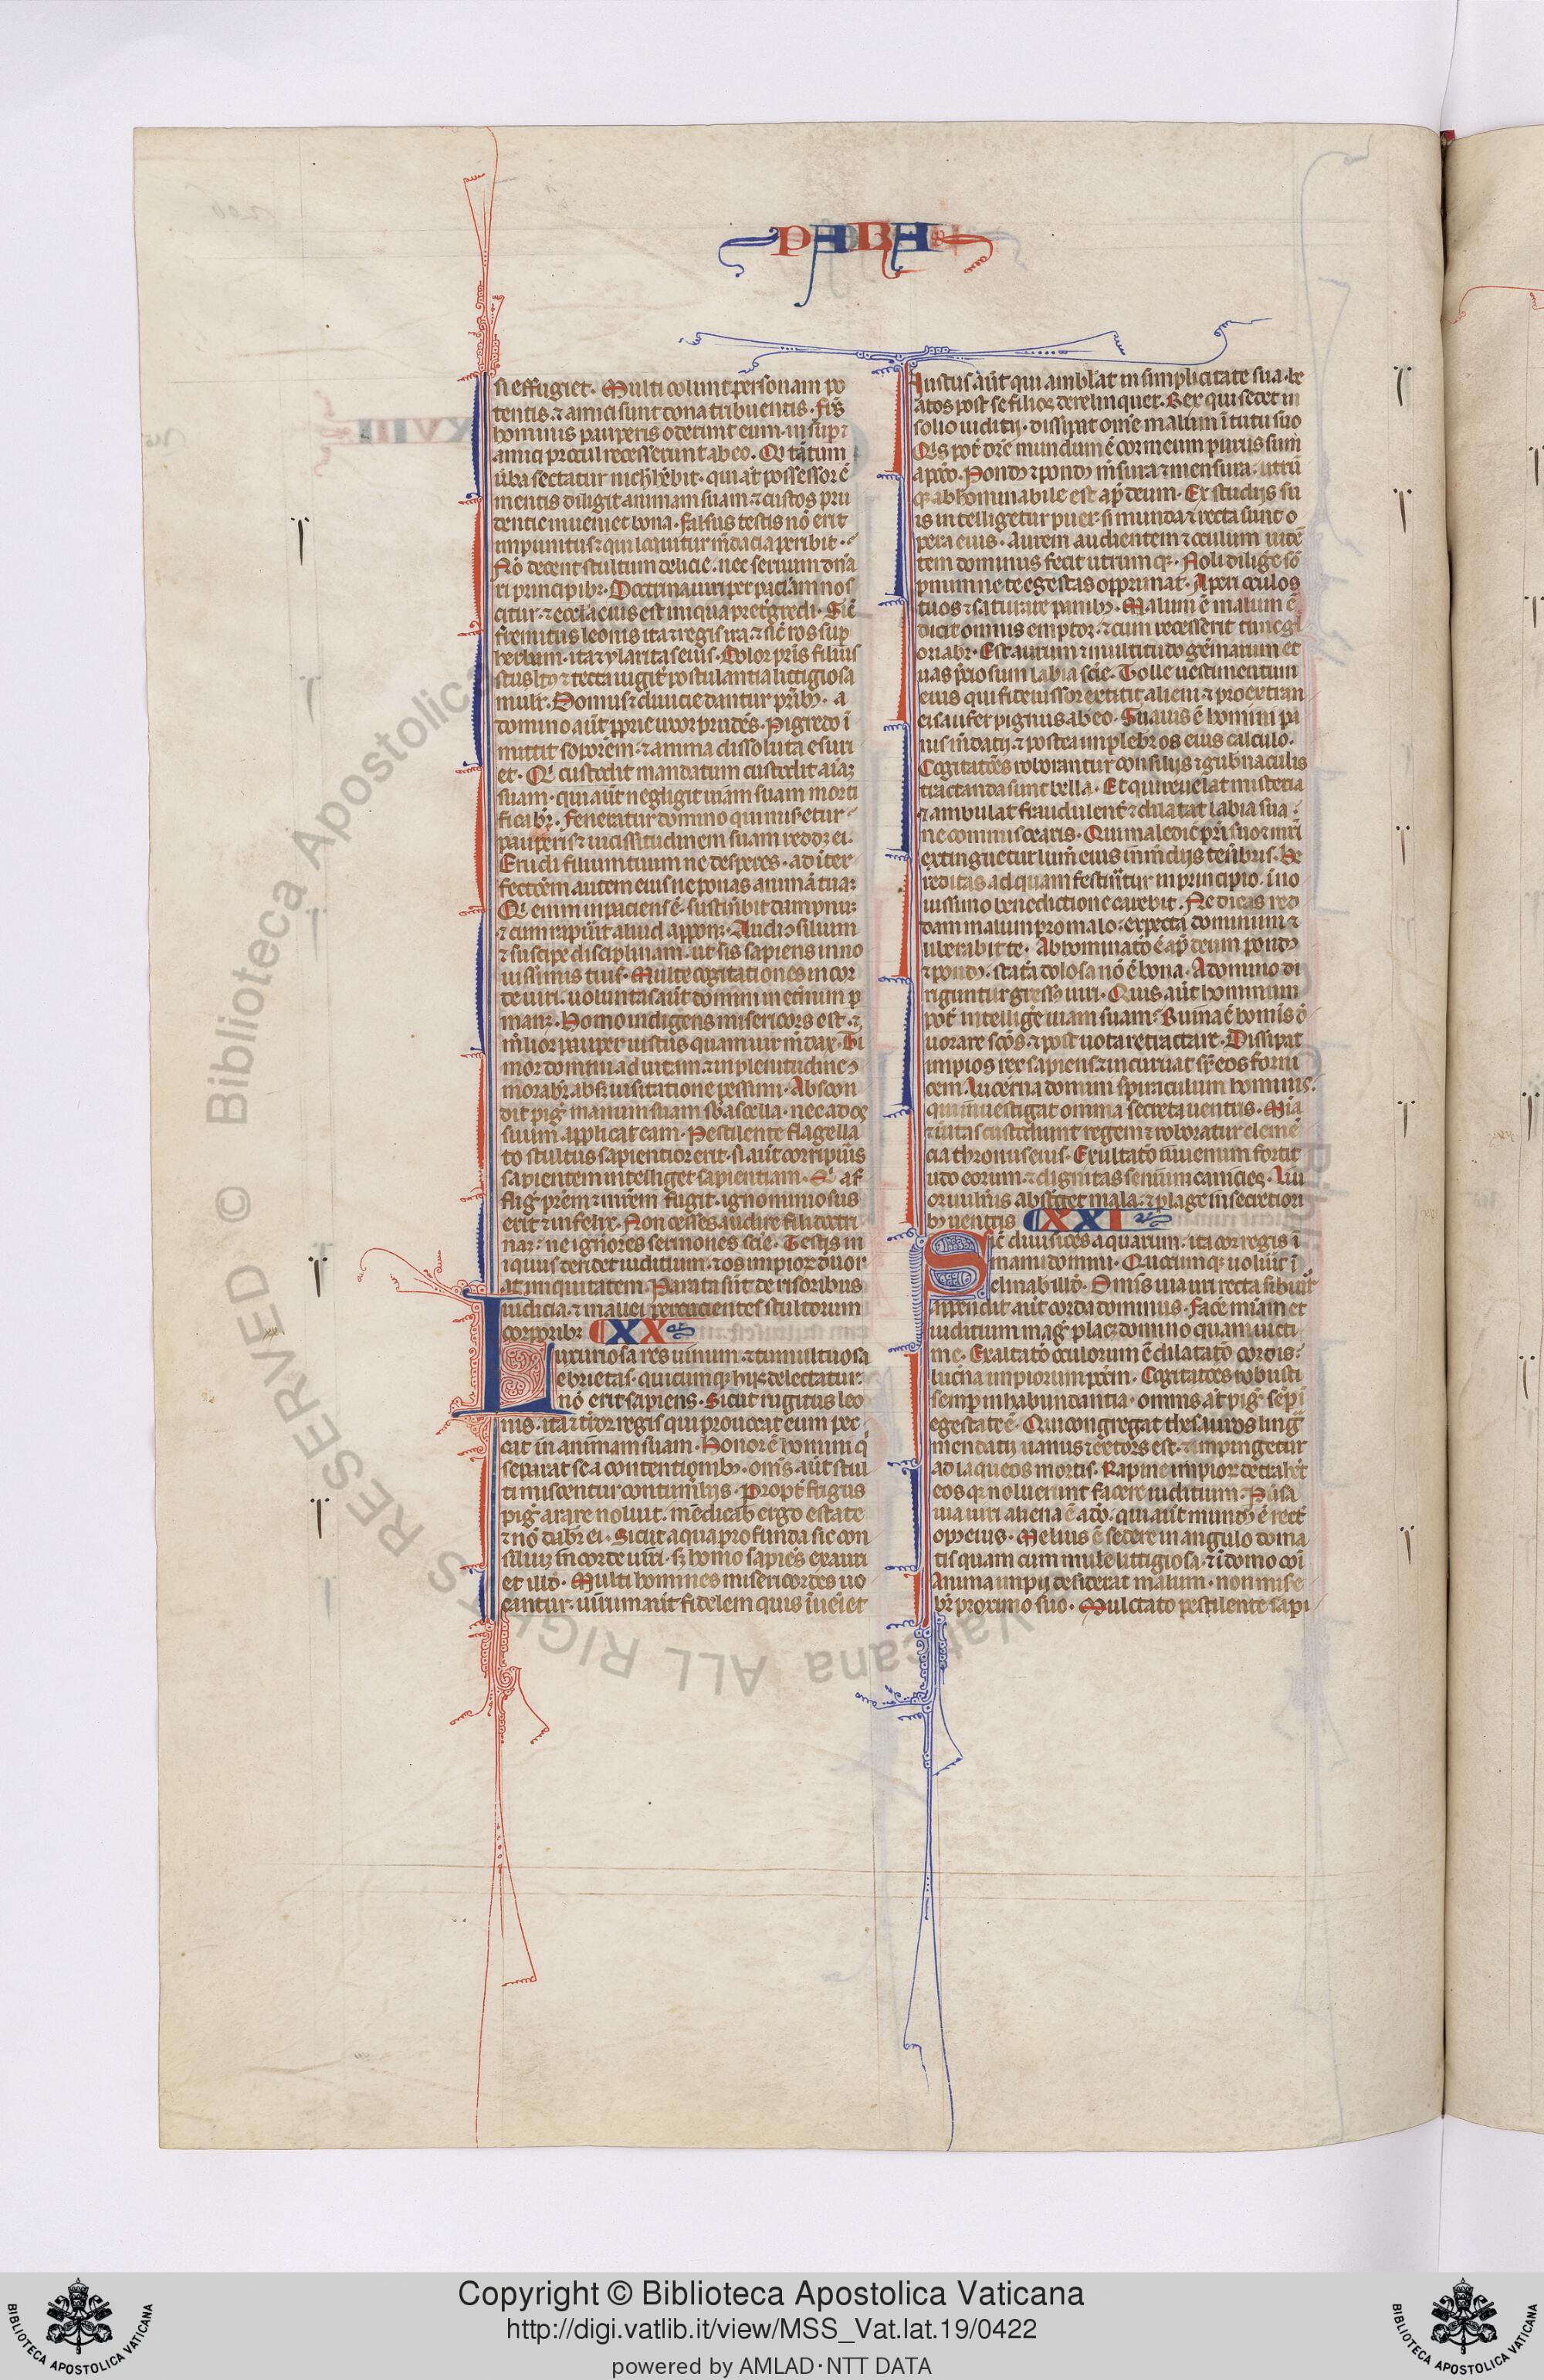 PARA
si effugiet. Multi colunt personam po
tentis. ⁊ amici sunt dona tribuentis. fr̄s
hominis pauperis oderunt eum. insup ⁊
amici procul recesserunt ab eo. Qi tātum
ūba sectatur nichil hēbit. qui aūt possessor ē
mentis diligit animam suam. ⁊ custos pru
dentie inueniet bona. falsus testis nō erit
impunitus. ⁊ qui loquitur mēdacia peribit.
Nō decent stultum delicie. nec seruum dn̄a
ri principibꝫ. Doctrina uiri per paciam nos
citur. ⁊ gloria eius est iniqua pretgredi. Sic̄
fremitus leonis ita ⁊ regis ira. ⁊ sic̄ ros sup
herbam. ita ⁊ ylaritas eius. Dolor pr̄is filius
stultꝰ ⁊ tecta iugit̄ postulantia littigiosa
mulr̄. Domus ⁊ diuicie dantur pn̄tibꝫ. a
domino aūt pprie uxor prudēs. Pigredo ī
mittit soporem. ⁊ anima dissoluta esuri
et. Qi custodit mandatum custodit aīaꝫ
suam. qui aūt negligit uiam suam morti
ficabr̄. feneratur domino qui miseretur
pauperis ⁊ uicissitudinem suam reddꝫ ei.
Erudi filium tuum ne desperes. ad īter
fectōem autem eius ne ponas animā tuaꝫ
Qi enim inpaciens ē. sustinebit dampnuꝫ
⁊ cum rapuit aliud apponꝫ. Audi ɔsilium
⁊ suscipe disciplinam. ut sis sapiens in no
uissimis tuis. Multe cogitationes in cor
de uiri. uoluntas aūt domini in eternum p
manꝫ. Homo indigens misericors est. ⁊
melior pauper iustus quam uir mēdax. Ti
mor domini ad uitam. ⁊ in plenitudine ɔ
morabr̄. absqꝫ uisitatione pessimi. Abscon
dit piḡ manum suam sb̄ ascella. nec ad os
suum applicat eam. Pestilente flagella
to stultus sapientior erit. si aūt corripuīs
sapientem intelliget sapientiam. Qi af
fliḡ prēm ⁊ mrēm fugit. ignominiosus
erit ⁊ infelix. Non cesses audire fili doctri
naꝫ. ne ignores sermones scīe. Testis in
iquus deridet iuditium. ⁊ os impioꝝ deuor
at iniquitatem. Parata sūt derisoribus
iudicia. ⁊ mallei percucientes stultorum
corporibꝫ XX
Luxuriosa res uinum. ⁊ tumultuosa
ebrietas. quicumqꝫ hijs delectatur
nō erit sapiens. Sicut rugitus leo
nis. ita ⁊ t̄ror regis qui prouocat eum pec
cat in animam suam. Honor ē homini qͥ
separat se a contentionibꝫ. om̄s aūt stul
ti miscentur contumelijs. Propt̄ frigus
piḡ arare noluit. mēdicab̄ ergo estate
⁊ nō dabr̄ ei. Sicut aqua profunda sic con
siliuꝫ in corde uiri. sꝫ homo sapiēs exauri
et illd̄. Multi homines misericordes uo
cantur. uirum aūt fidelem quis īueniet
Iustus aūt qui amblat in simplicitate sua. be
atos post se filios derelinquet. Rex qui sedet in
solio iuditij. dissipat om̄e malum ītuitu suo
Qis pot̄ dr̄e mundum ē cor meum purus sum
a pcc̄o. Pondꝰ ⁊ pondꝰ mēsura ⁊ mensura. utrū
qꝫ abhominabile est ap̄ deum. Ex studijs su
is intelligetur puer. si munda ⁊ recta sunt o
pera eius. Aurem audientem ⁊ oculum uidē
tem dominus fecit utrumqꝫ. Noli diligē sō
pnum ne te egestas opprimat. Aperi oculos
tuos ⁊ saturare panibꝫ. Malum ē malum ē
dicit omnis emptor. ⁊ cum recesserit tunc gl̄
oriabr̄. Est aurum ⁊ multitudo gēmarum et
uas p̄ciosum labia scīe. Tolle uestimentum
eius qui fideiussor extitit alieni ⁊ pro extran
eis aufer pignus ab eo. Suauis ē homini pa
nis mēdatij. ⁊ postea implebr̄ os eius calculo.
Cogitatōes roborantur consilijs ⁊ gubnaculis
tractanda sunt bella. Et qui reuelat misteria
⁊ ambulat fraudulent̄ ⁊ dilatat labia sua.
ne commiscearis. Qui maledic̄ pr̄i suo ⁊ mr̄i
extinguetur lum̄ eius in medijs tenebris. He
reditas ad quam festinatur in principio. ī no
uissimo benedictione carebit. Ne dicas red
dam malum pro malo. expecta dominum ⁊
liberabit te. Abhominatō ē ap̄ deum pondꝰ
⁊ pondꝰ. statā dolosa nō ē bona. A domino di
riguntur gressꝰ uiri. Quis aūt hominum
pot̄ intelligē uiam suam. Ruina ē homīs d̄
uorare scōs. ⁊ post uota retractare. Dissipat
impios rex sapiens. ⁊ incuruat sr̄ eos forni
cem. Lucerna domini spiraculum hominis.
qui inuestigat omnia secreta uentris. Mīa
⁊ ūitas custodiunt regem ⁊ roboratur clemē
cia thronus eius. Exultatō iuuenum fortit
udo eorum. ⁊ dignitas senum canicies. Liu
or uulneris absterget mala. ⁊ plage in secretiori
bꝫ uentris XXI
Sic̄ diuisiōes aquarum. ita cor regis ī
manu domini. Quocumqꝫ uoluīt ī
clinab̄ illd̄. Omīs uia uiri recta sibi uīr
appendit aūt corda dominus. facē mīam et
iuditium maḡ placꝫ domino quam uicti
me. Exaltatō oculorum ē dilatatō cordis.
luc̄na impiorum pcc̄m. Cogitatōes robusti
semp in habundantia. omnis aūt piḡ sēp ī
egestate ē. Qui congregat thes̄auros linḡ
mendatij uanus ⁊ excors est. ⁊ impingetur
ad laqueos mortis. Rapine impioꝝ detrahēt
eos qꝫ noluerunt facere iuditium. Puersa
uia uiri aliena ē a dō. qui aūt mundꝰ ē rect̄
opꝰ eius. Melius ē sedere in angulo doma
tis quam cum muliē littigiosa. ⁊ ī domo coī
Anima impij desiderat malum. non mise
br̄ proximo suo. Mulctato pestilente sapi
© Biblioteca Apostolica Vaticana ALL RIGHTS RESERVED
Copyright © Biblioteca Apostolica Vaticana
http://digi.vatlib.it/view/MSS_Vat.lat.19/0422
powered by AMLAD·NTT DATA
BIBLIOTECA APOSTOLICA VATICANA
BIBLIOTECA APOSTOLICA VATICANA